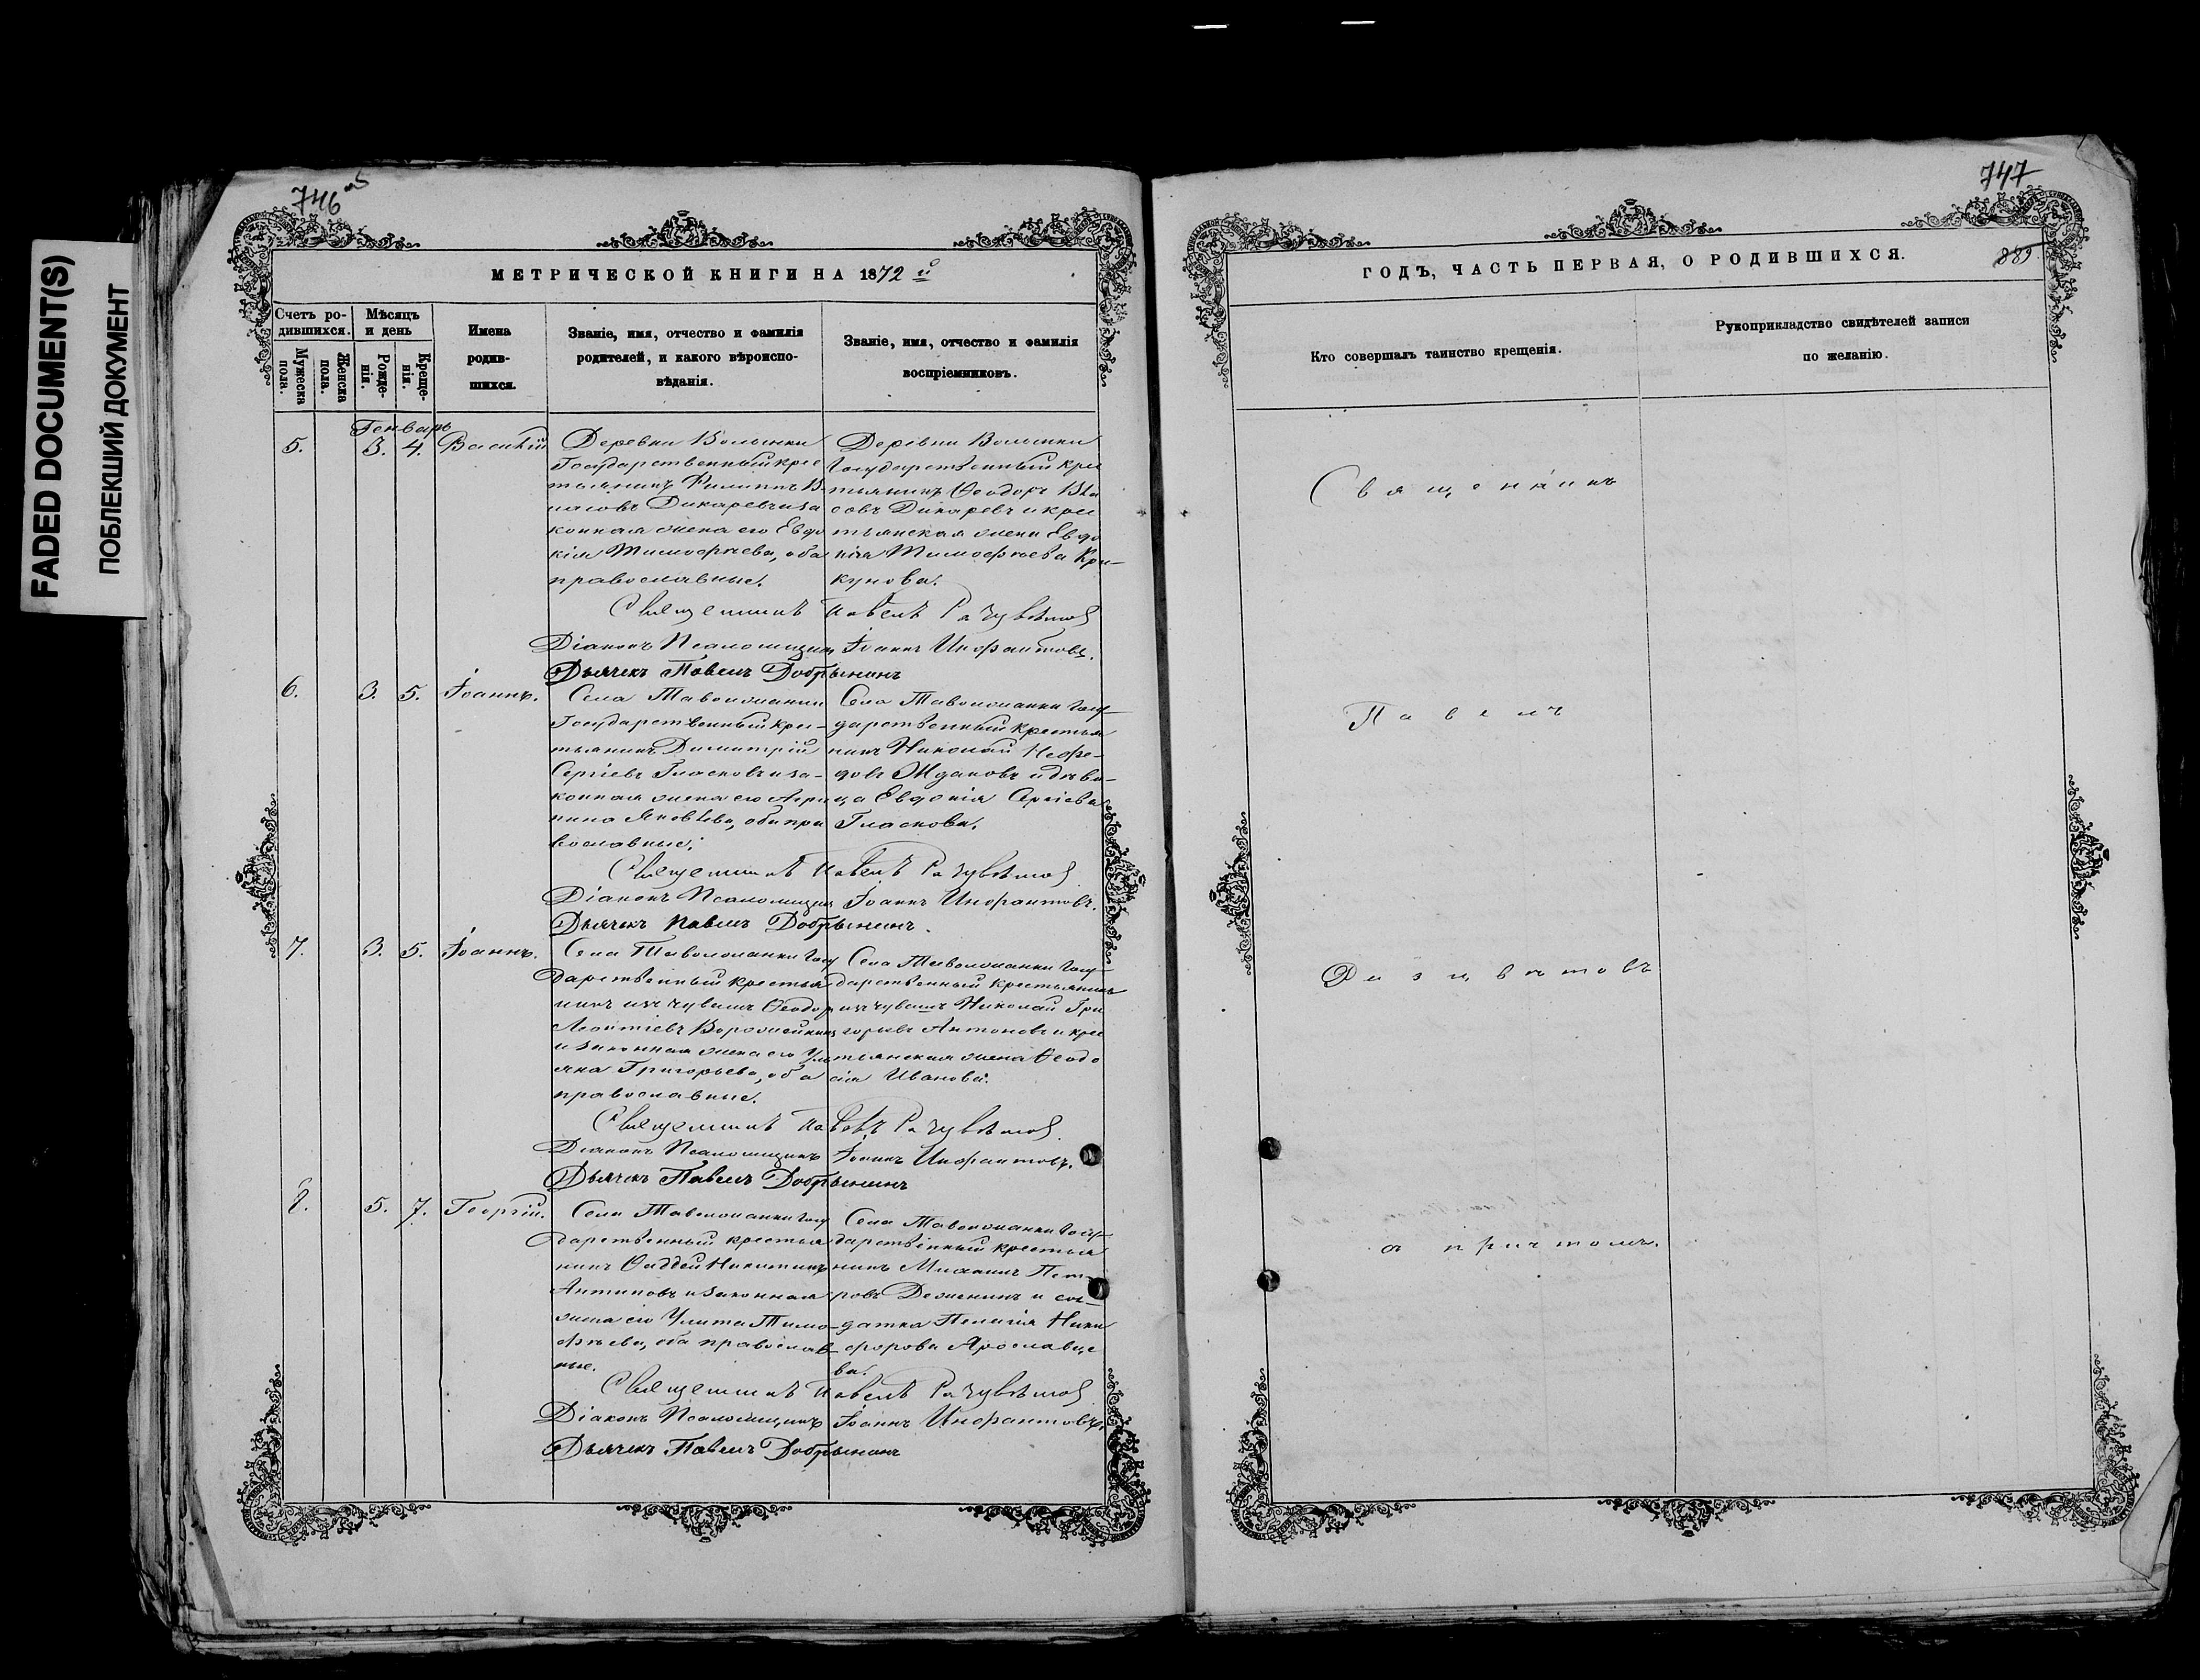 FADED DOCUMENT(S)
ПОБЛЕКШИЙ ДОКУМЕНТ
746 об
МЕТРИЧЕСКОЙ КНИГИ НА 1872 й
Счетъ ро-
дившихся.
Мужеска
пола.
Женска
пола.
Мѣсяцъ
и день
Рожде-
нія.
Креще-
нія.
Имена
родив-
шихся.
Званіе, имя, отчество и фамилія
родителей, и какого вѣроиспо-
вѣданія.
Званіе, имя, отчество и фамилія
воспріемниковъ.
Генварь
5. 3. 4. Василій
Деревни
Государственный крес
тьянинъ Филиппъ В
ласовъ Дикаревъ и за
конная жена его Евдо
кія Тимофѣева, оба
православные.
Деревни
Государственный крес
тьянинъ Ѳеодоръ Вла
совъ Дикаревъ и крес
тьянская жена Евдо
кія Тимофѣева Кри-
кунова.
Священникъ Павелъ Разцвѣтовъ
Діаконъ Псаломщикъ Іоаннъ Инфантовъ.
Дьячекъ Павелъ Добрынинъ
6. 3. 5. Іоаннъ.
Села Таволжанки
Государственный крес-
тьянинъ Димитрій
Сергіевъ Гласковъ и за-
конная жена его Агри
пина Яковлева, оба пра
вославные.
Села Таволжанки Госу-
дарственный крестья
нинъ Николай Нефе-
довъ Ждановъ и дѣви-
ца Евдокія Сергіева
Гласкова.
Священникъ Павелъ Разцвѣтовъ
Діаконъ Псаломщикъ Іоаннъ Инфантовъ.
Дьячекъ Павелъ Добрынинъ.
7. 3. 5. Іоаннъ.
Села Таволжанки Госу
дарственный крестья
нинъ изъ чувашъ Ѳеодоръ
Леонтіевъ Ворожейкинъ
и законная жена его Уль
яна Григорьева, оба
православные.
Села Таволжанки Госу-
дарственный крестьянинъ
изъ чувашъ Николай Гри
горьевъ Антоновъ и крес
тьянская жена Ѳеодо
сія Иванова.
Священникъ Павелъ Разцвѣтовъ
Діаконъ Псаломщикъ Іоаннъ Инфантовъ.
Дьячекъ Павелъ Добрынинъ
8. 5. 7. Георгій.
Села Таволжанки Госу
дарственный крестья
нинъ Ѳаддей Никитинъ
Антиповъ и законная
жена его Улита Тимо-
фѣева, оба православ
ные.
Села Таволжанки Госу-
дарственный крестья
нинъ Михаилъ Пет-
ровъ и сол-
датка Пелагія Ники
форова Ярославце
ва.
Священникъ Павелъ Разцвѣтовъ
Діаконъ Псаломщикъ Іоаннъ Инфантовъ.
Дьячекъ Павелъ Добрынинъ
747
889.
ГОДЪ, ЧАСТЬ ПЕРВАЯ, О РОДИВШИХСЯ.
Кто совершалъ таинство крещенія.
Рукоприкладство свидѣтелей записи
по желанію.
Священникъ
Павелъ
Разцвѣтовъ
съ причтомъ.